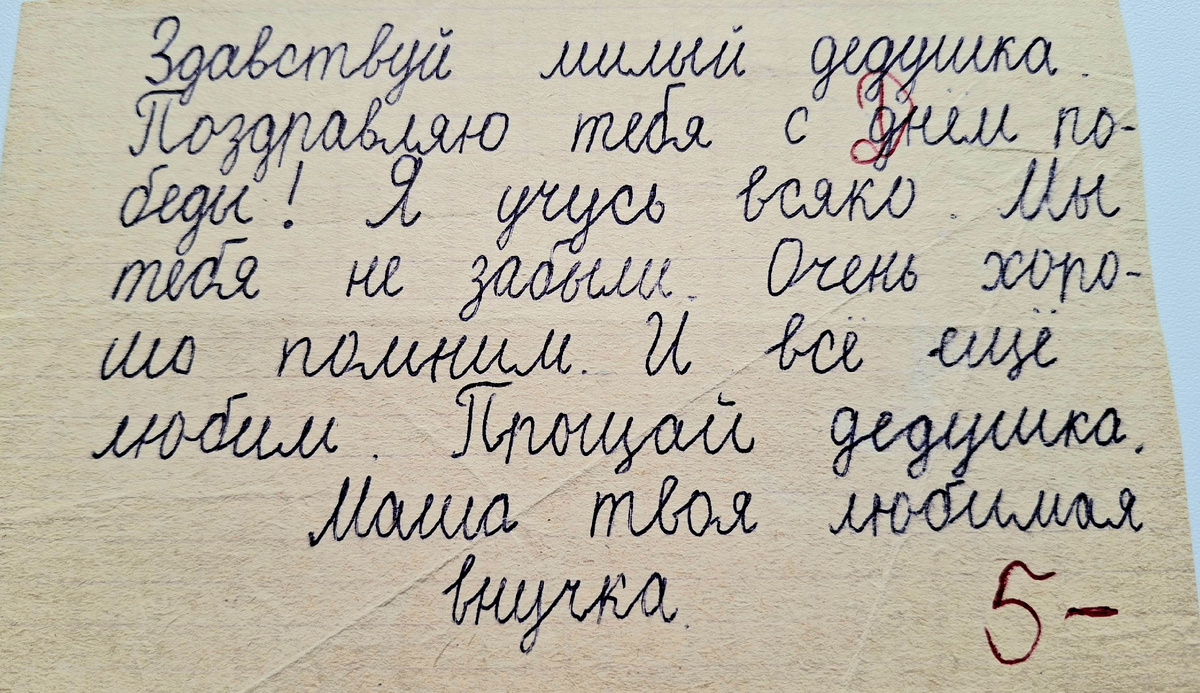 Здавствуй милый дедушка.
Поздравляю тебя с Днём по-
беды! Я учусь всяко. Мы
тебя не забыли. Очень хоро-
шо помним. И всё ещё
любим. Прощай дедушка.
Маша твоя любимая
внучка.
5-